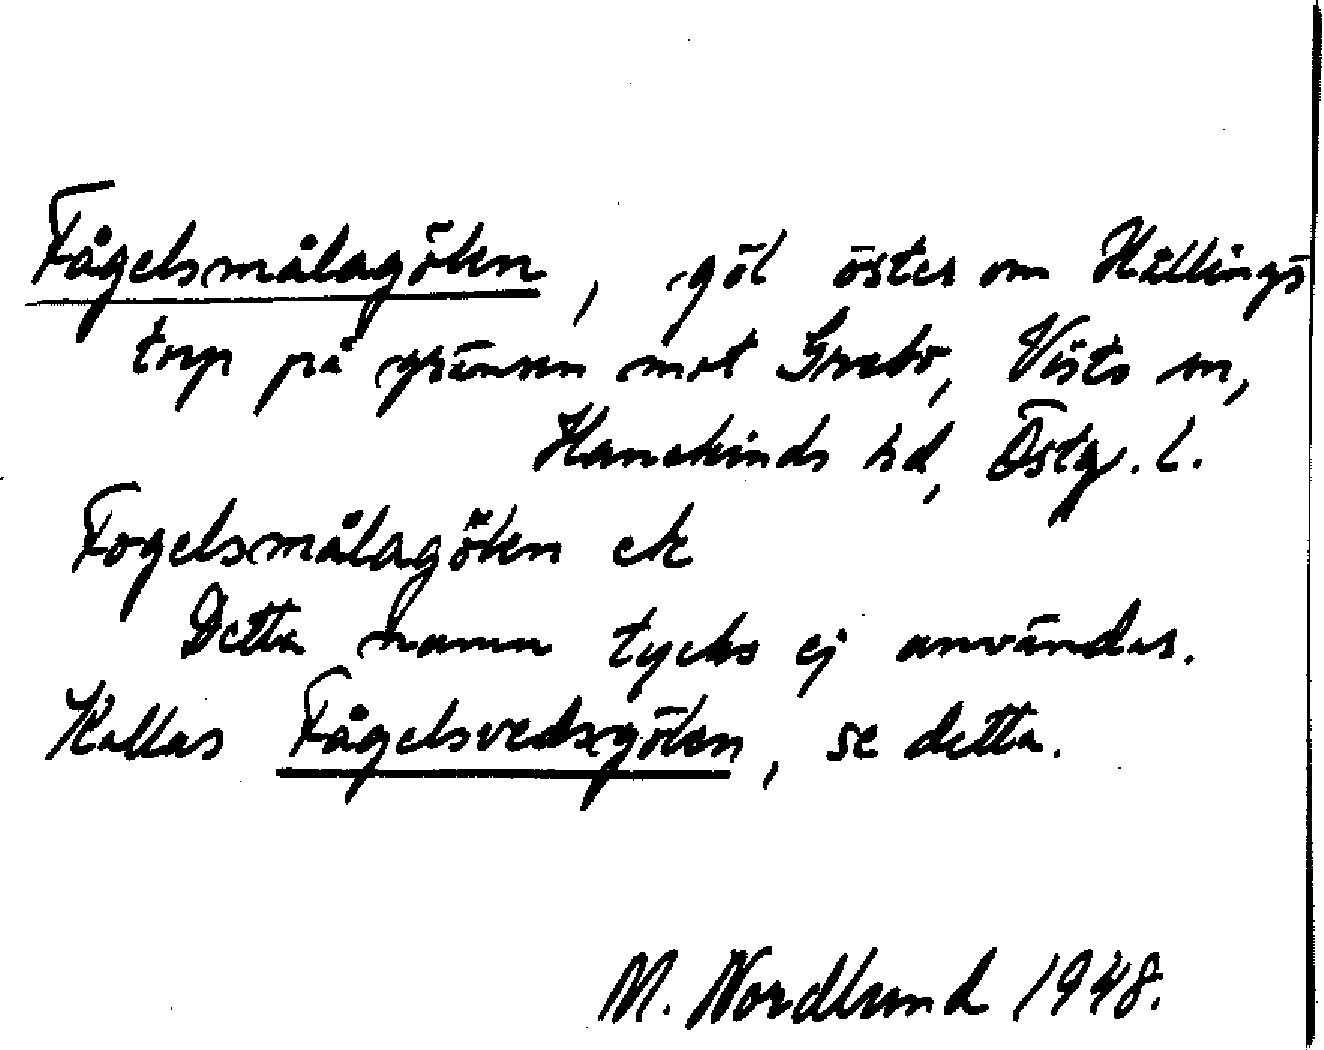 Fågelsmålagölen, göl öster om Hällings
torp på gränsen mot Grebo, Vists sn,
Hanekinds hd, Östg. l.
Fogelsmålagölen ek
Detta namn tycks ej användas.
Kallas Fågelsvedsgölen, se detta.
M. Nordlund 1948.